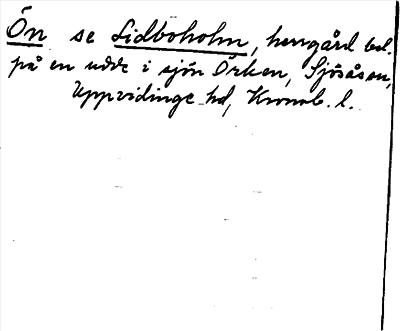 Ön se Lidboholm, herrgård bel.
på en udde i sjön Örken, Sjösåsen,
Uppvidinge hd, Kronob. l.